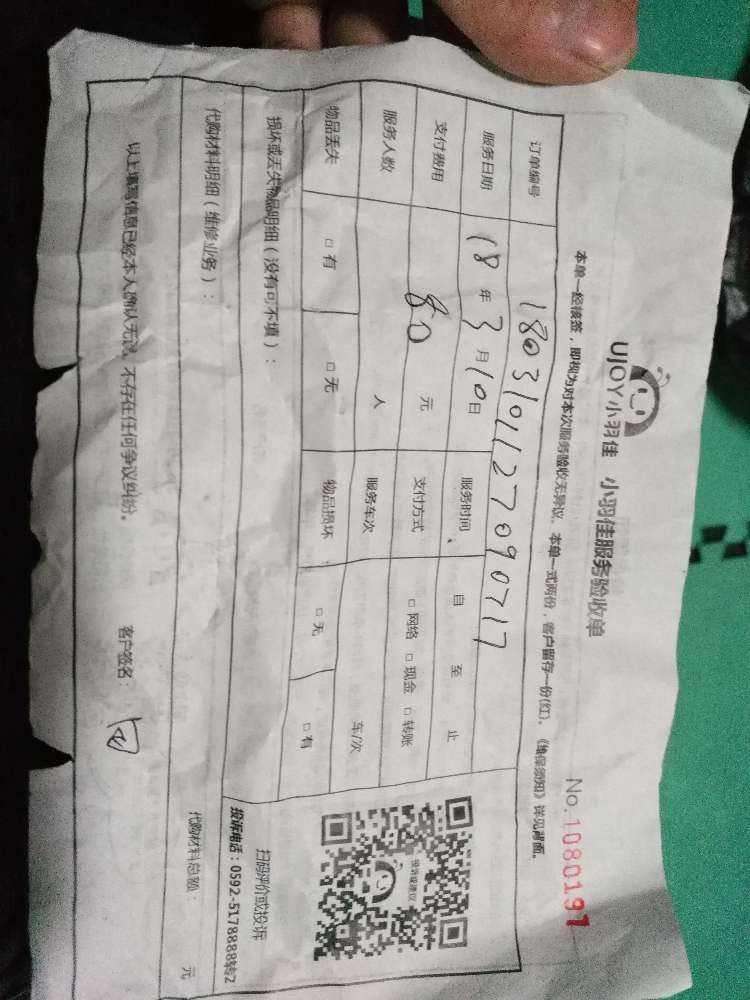 UJOY小羽佳 小羽佳服务验收单
No.1080191
本单一经核签，即视为对本次服务验收无异议。本单一式两份，客户留存一份(红)。《维保须知》详见背面。
订单编号 1803101127090717
服务日期 18年3月10日 服务时间 自 至 止
支付费用 80元 支付方式 □网络 □现金 □转账
服务人数 人 服务车次 车/次
物品丢失 □有 □无 物品损坏 □无 □有
损坏或丢失物品明细（没有可不填）：
扫码评价或投诉
投诉电话：0592-5178888转2
代购材料明细（维修业务）： 代购材料总额： 元
以上填写信息已经本人确认无误，不存在任何争议纠纷。 客户签名：